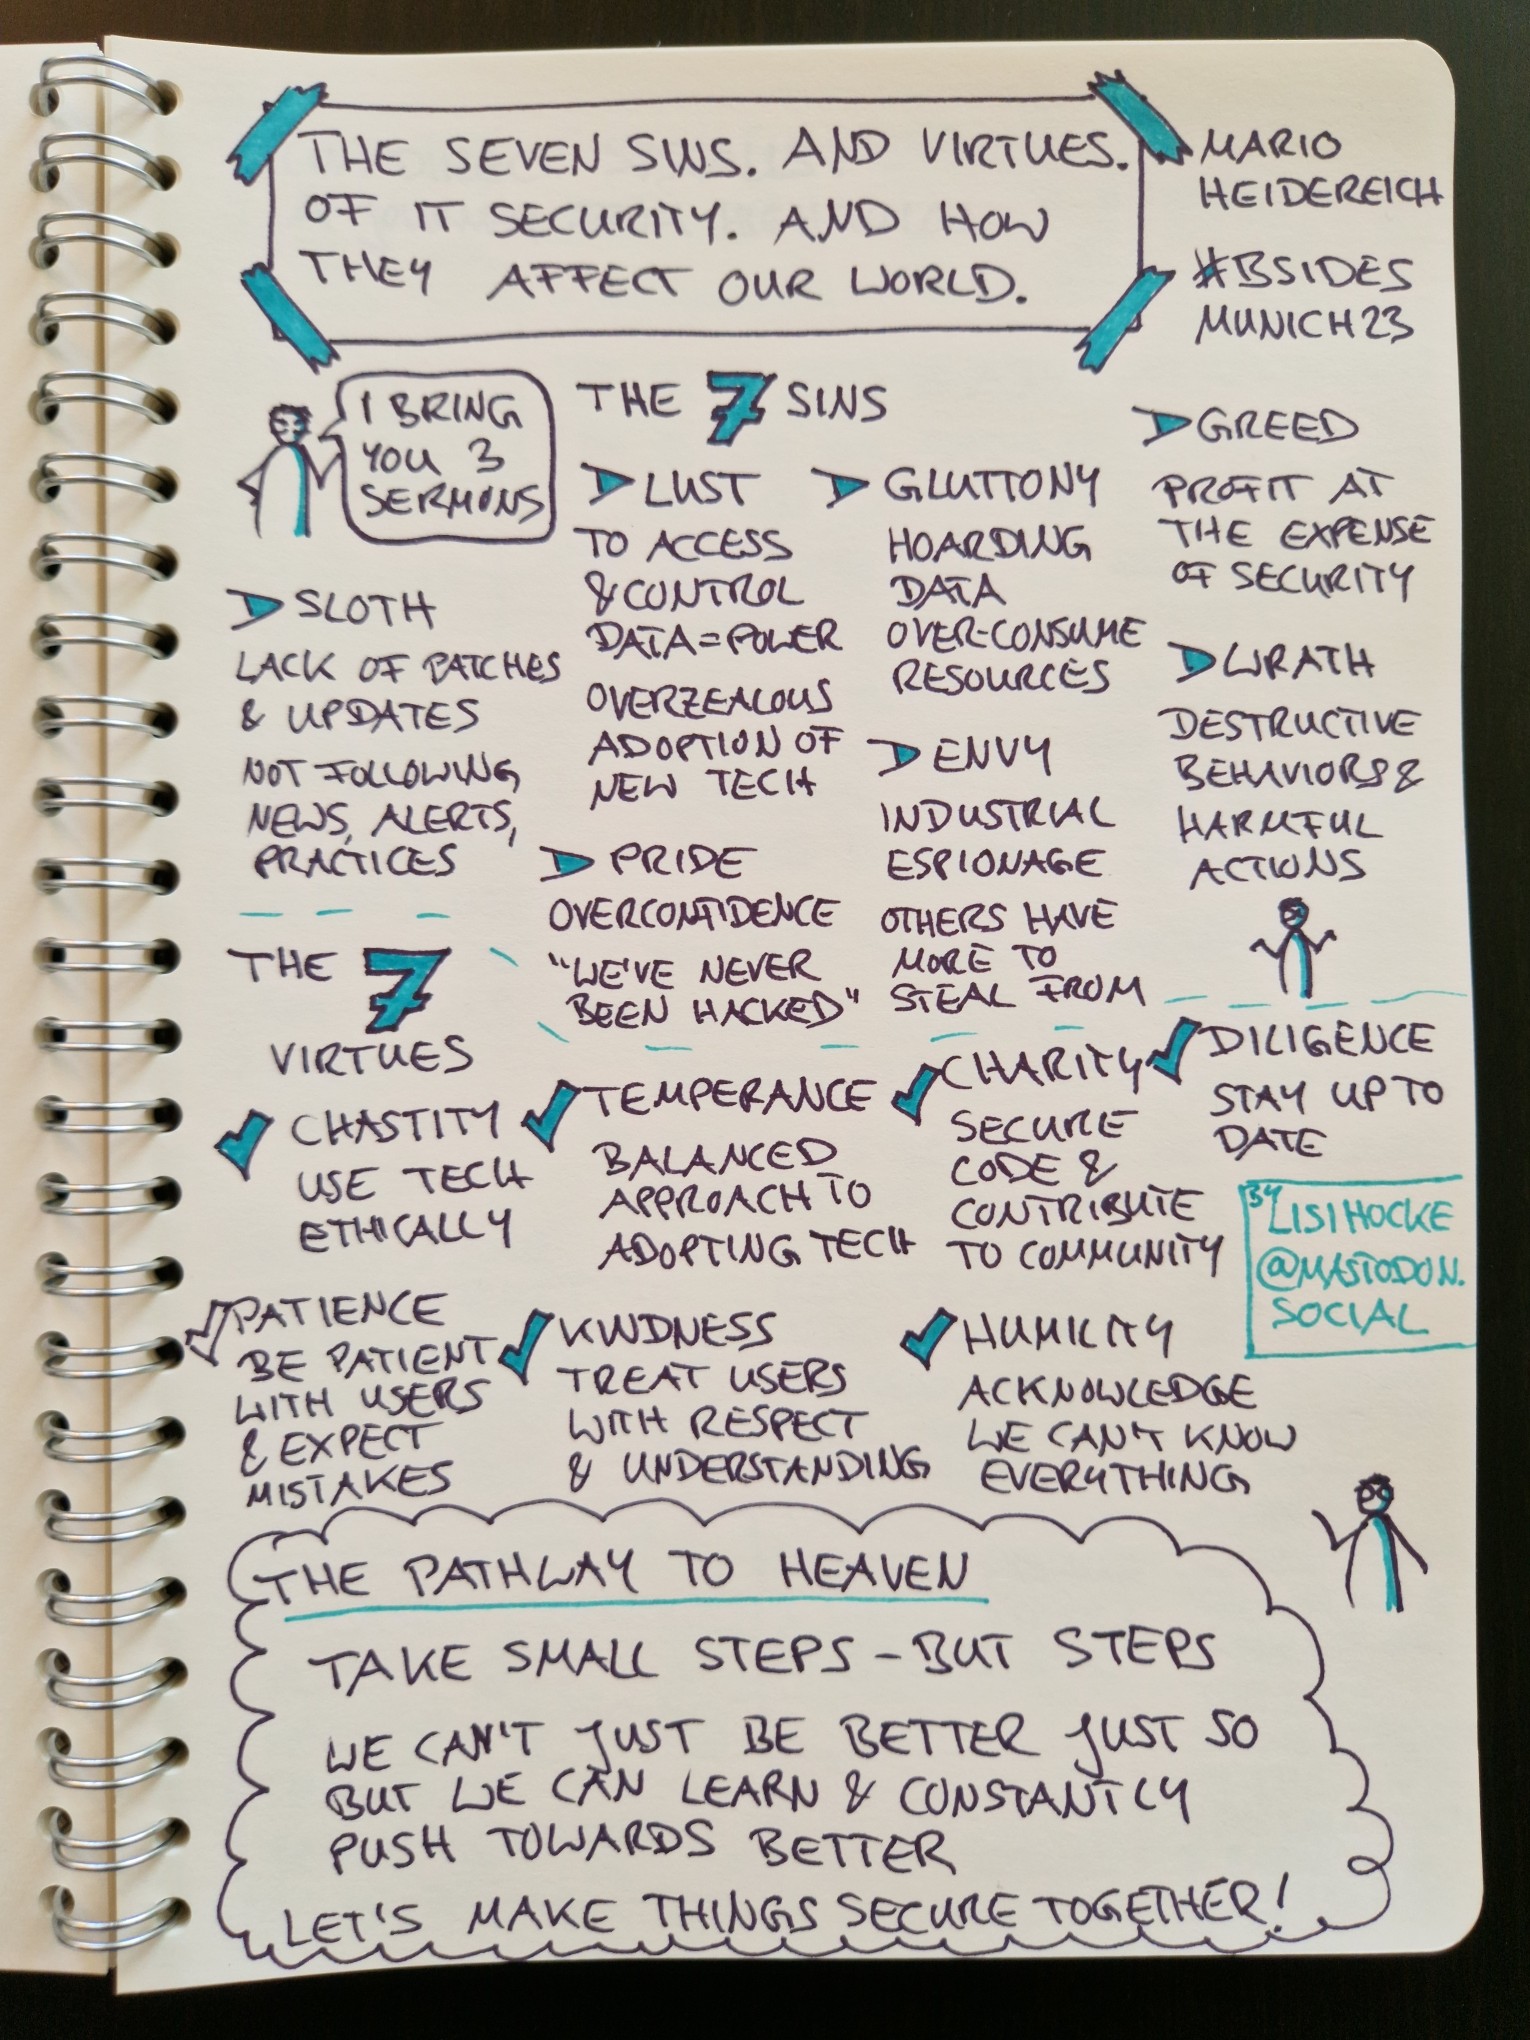 THE SEVEN SINS. AND VIRTUES.
OF IT SECURITY. AND HOW
THEY AFFECT OUR WORLD.
MARIO
HEIDEREICH
#BSIDES
MUNICH23
I BRING
YOU 3
SERMONS
THE 7 SINS
LUST
TO ACCESS
& CONTROL
DATA = POWER
OVERZEALOUS
ADOPTION OF
NEW TECH
GLUTTONY
HOARDING
DATA
OVER-CONSUME
RESOURCES
GREED
PROFIT AT
THE EXPENSE
OF SECURITY
SLOTH
LACK OF PATCHES
& UPDATES
NOT FOLLOWING
NEWS, ALERTS,
PRACTICES
PRIDE
OVERCONFIDENCE
"WE'VE NEVER
BEEN HACKED"
ENVY
INDUSTRIAL
ESPIONAGE
OTHERS HAVE
MORE TO
STEAL FROM
WRATH
DESTRUCTIVE
BEHAVIORS &
HARMFUL
ACTIONS
THE 7
VIRTUES
CHASTITY
USE TECH
ETHICALLY
TEMPERANCE
BALANCED
APPROACH TO
ADOPTING TECH
CHARITY
SECURE
CODE &
CONTRIBUTE
TO COMMUNITY
DILIGENCE
STAY UP TO
DATE
BY
LISIHOCKE
@MASTODON.
SOCIAL
PATIENCE
BE PATIENT
WITH USERS
& EXPECT
MISTAKES
KINDNESS
TREAT USERS
WITH RESPECT
& UNDERSTANDING
HUMILITY
ACKNOWLEDGE
WE CAN'T KNOW
EVERYTHING
THE PATHWAY TO HEAVEN
TAKE SMALL STEPS - BUT STEPS
WE CAN'T JUST BE BETTER JUST SO
BUT WE CAN LEARN & CONSTANTLY
PUSH TOWARDS BETTER
LET'S MAKE THINGS SECURE TOGETHER!